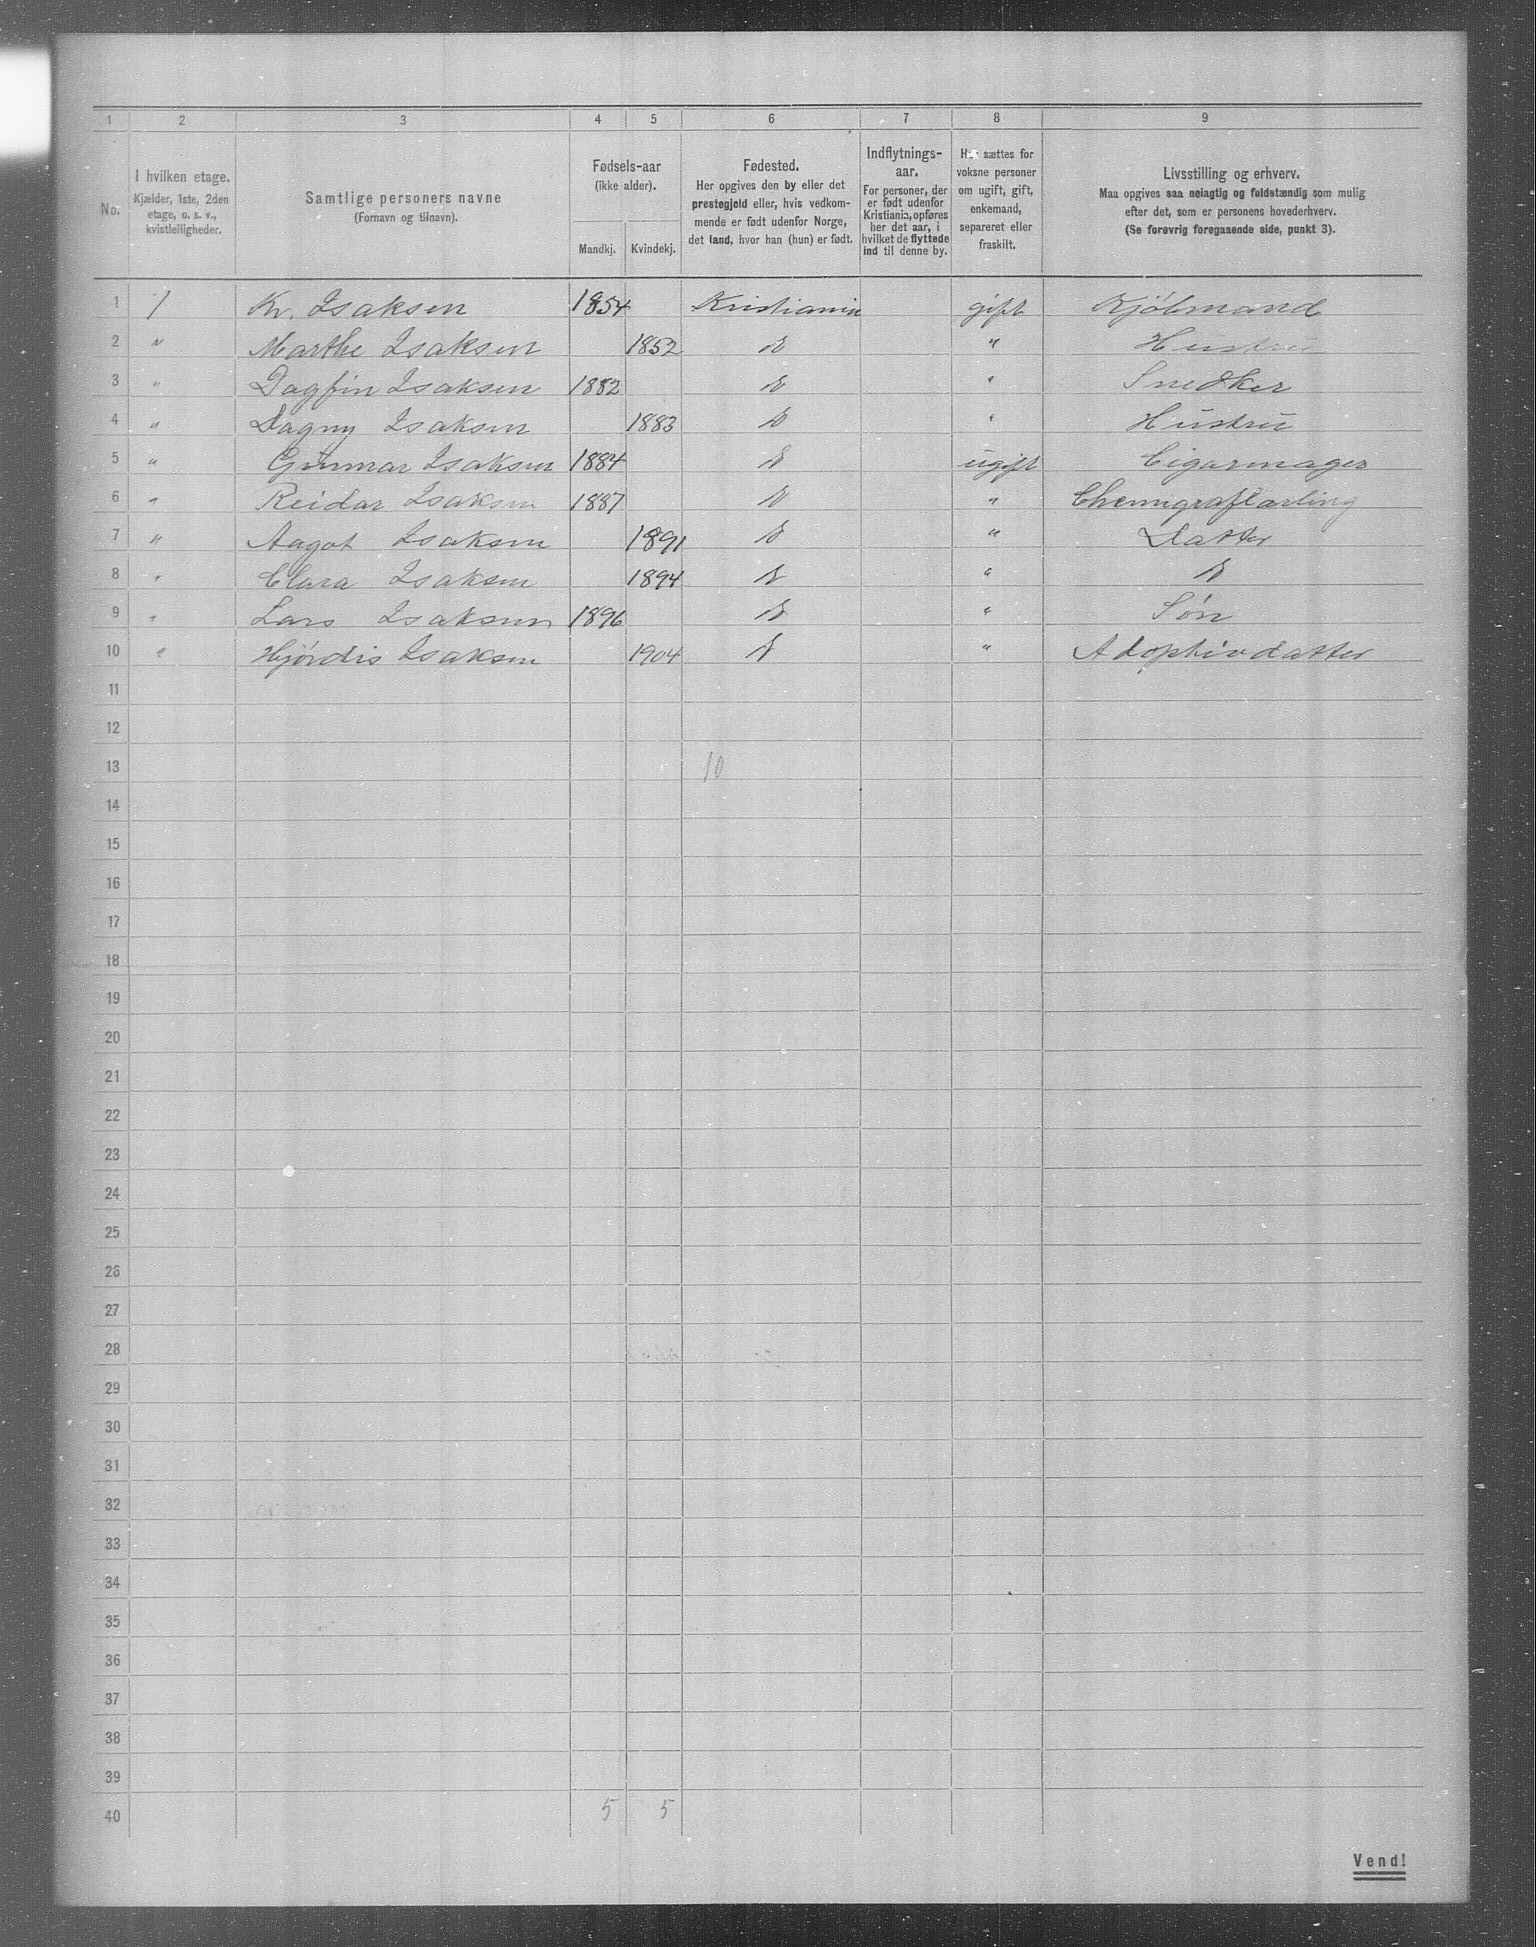 1 2 3 4 5 6 7 8 9
No.
I hvilken etage.
Kjælder, 1ste, 2den
etage, o. s. v.,
kvistleiligheder.
Samtlige personers navne
(Fornavn og tilnavn).
Fødsels-aar
(ikke alder).
Mandkj. Kvindekj.
Fødested.
Her opgives den by eller det
prestegjeld eller, hvis vedkom-
mende er født udenfor Norge,
det land, hvor han (hun) er født.
Indflytnings-
aar.
For personer, der
er født udenfor
Kristiania, opføres
her det aar, i
hvilket de flyttede
ind til denne by.
Her sættes for
voksne personer
om ugift, gift,
enkemand,
separeret eller
fraskilt.
Livsstilling og erhverv.
Maa opgives saa nøiagtig og fuldstændig som mulig
efter det, som er personens hovederhverv.
(Se forøvrig foregaaende side, punkt 3).
1 1 Kr. Isaksen 1854 Kristiania gift Kjøbmand
2 " Marthe Isaksen 1852 D " Hustru
3 " Dagfin Isaksen 1882 D " Snedker
4 " Dagny Isaksen 1883 D " Hustru
5 " Gunnar Isaksen 1884 D ugift Cigarmager
6 " Reidar Isaksen 1887 D " Chemigraflærling
7 " Aagot Isaksen 1891 D " Datter
8 " Clara Isaksen 1894 D " D
9 " Lars Isaksen 1896 D " Søn
10 " Hjørdis Isaksen 1904 D " Adoptivdatter
11
12
13 10
14
15
16
17
18
19
20
21
22
23
24
25
26
27
28
29
30
31
32
33
34
35
36
37
38
39
40 5 5
Vend!